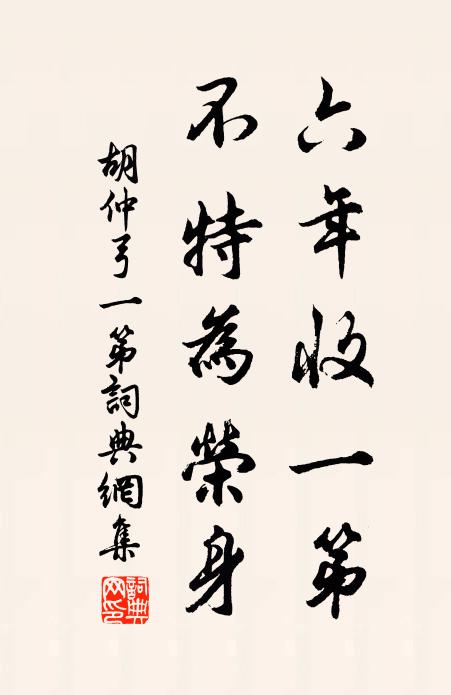 六年收一第
不特為榮身
胡仲弓一第詞典網集
詞典網印